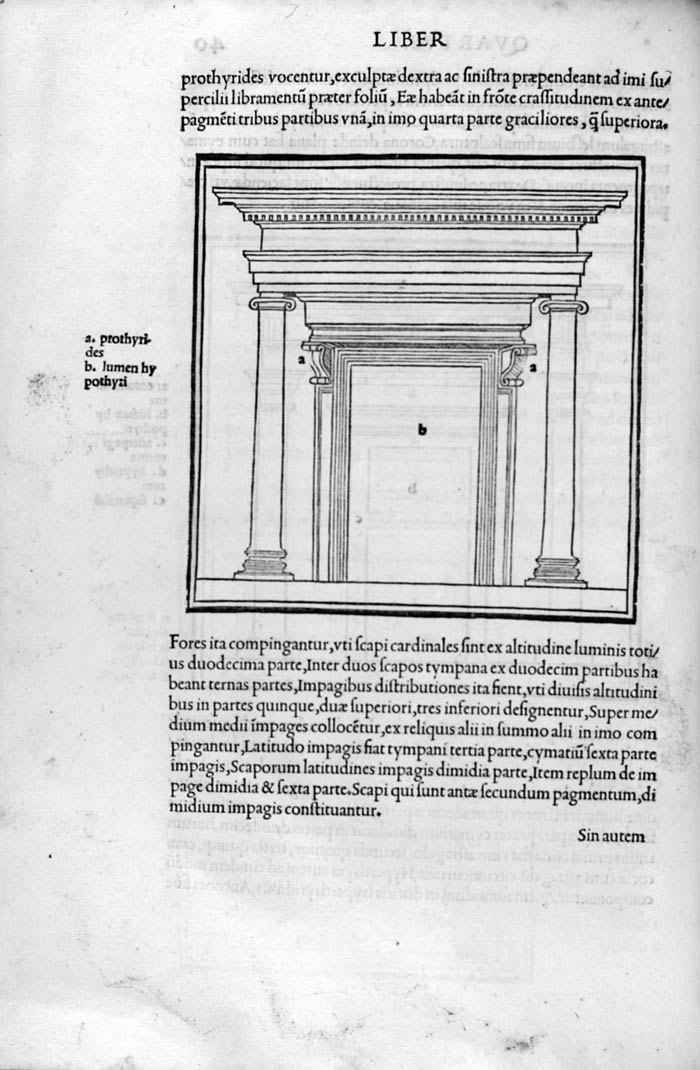 LIBER
prothyrides vocentur,exculptæ dextra ac ſiniſtra præpendeant ad imi ſu/
percilii libramentū præter foliū, Eæ habeāt in frōte craſſitudinem ex ante/
pagmēti tribus partibus vnā,in imo quarta parte graciliores, q̄ ſuperiora.
a. prothyri-
des
b. lumen hy
pothyri
a
a
b
Fores ita compingantur,vti ſcapi cardinales ſint ex altitudine luminis toti/
us duodecima parte,Inter duos ſcapos tympana ex duodecim partibus ha
beant ternas partes,Impagibus diſtributiones ita fient,vti diuiſis altitudini
bus in partes quinque,duæ ſuperiori,tres inferiori deſignentur,Super me/
dium medii īmpages collocētur,ex reliquis alii in ſummo alii in imo com
pingantur,Latitudo impagis fiat tympani tertia parte,cymatiū ſexta parte
impagis,Scaporum latitudines impagis dimidia parte,Item replum de im
page dimidia & ſexta parte.Scapi qui ſunt antæ ſecundum pagmentum,di
midium impagis conſtituantur.
Sin autem